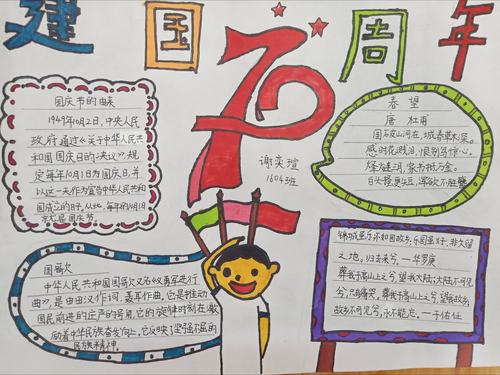 建国70周年
国庆节的由来
1949年10月2日,中央人民
政府通过《关于中华人民共
和国国庆日的决议》规
定每年10月1日为国庆日,并
以这一天作为宣告中华人民共和
国成立的日子,从此,每年的10月1日
就是国庆节。
谢奕瑄
1604班
春望
唐 杜甫
国破山河在,城春草木深。
感时花溅泪,恨别鸟惊心。
烽火连三月,家书抵万金。
白头搔更短,浑欲不胜簪
国歌
中华人民共和国国歌又名《义勇军进行
曲》,是由田汉作词,聂耳作曲,它是推动
国民前进的庄严的号角,它的旋律时刻在激
励着中华民族奋发向上,它反映了坚强不屈的
民族精神。
锦城虽乐不如回故乡,乐园虽好,非久留
之地,归去来兮,一华罗庚
葬我于高山上兮,望我大陆,大陆不可见
兮,只有痛哭,葬我于高山上兮,望我故乡,
故乡不可见兮,永不能忘,一于佑任